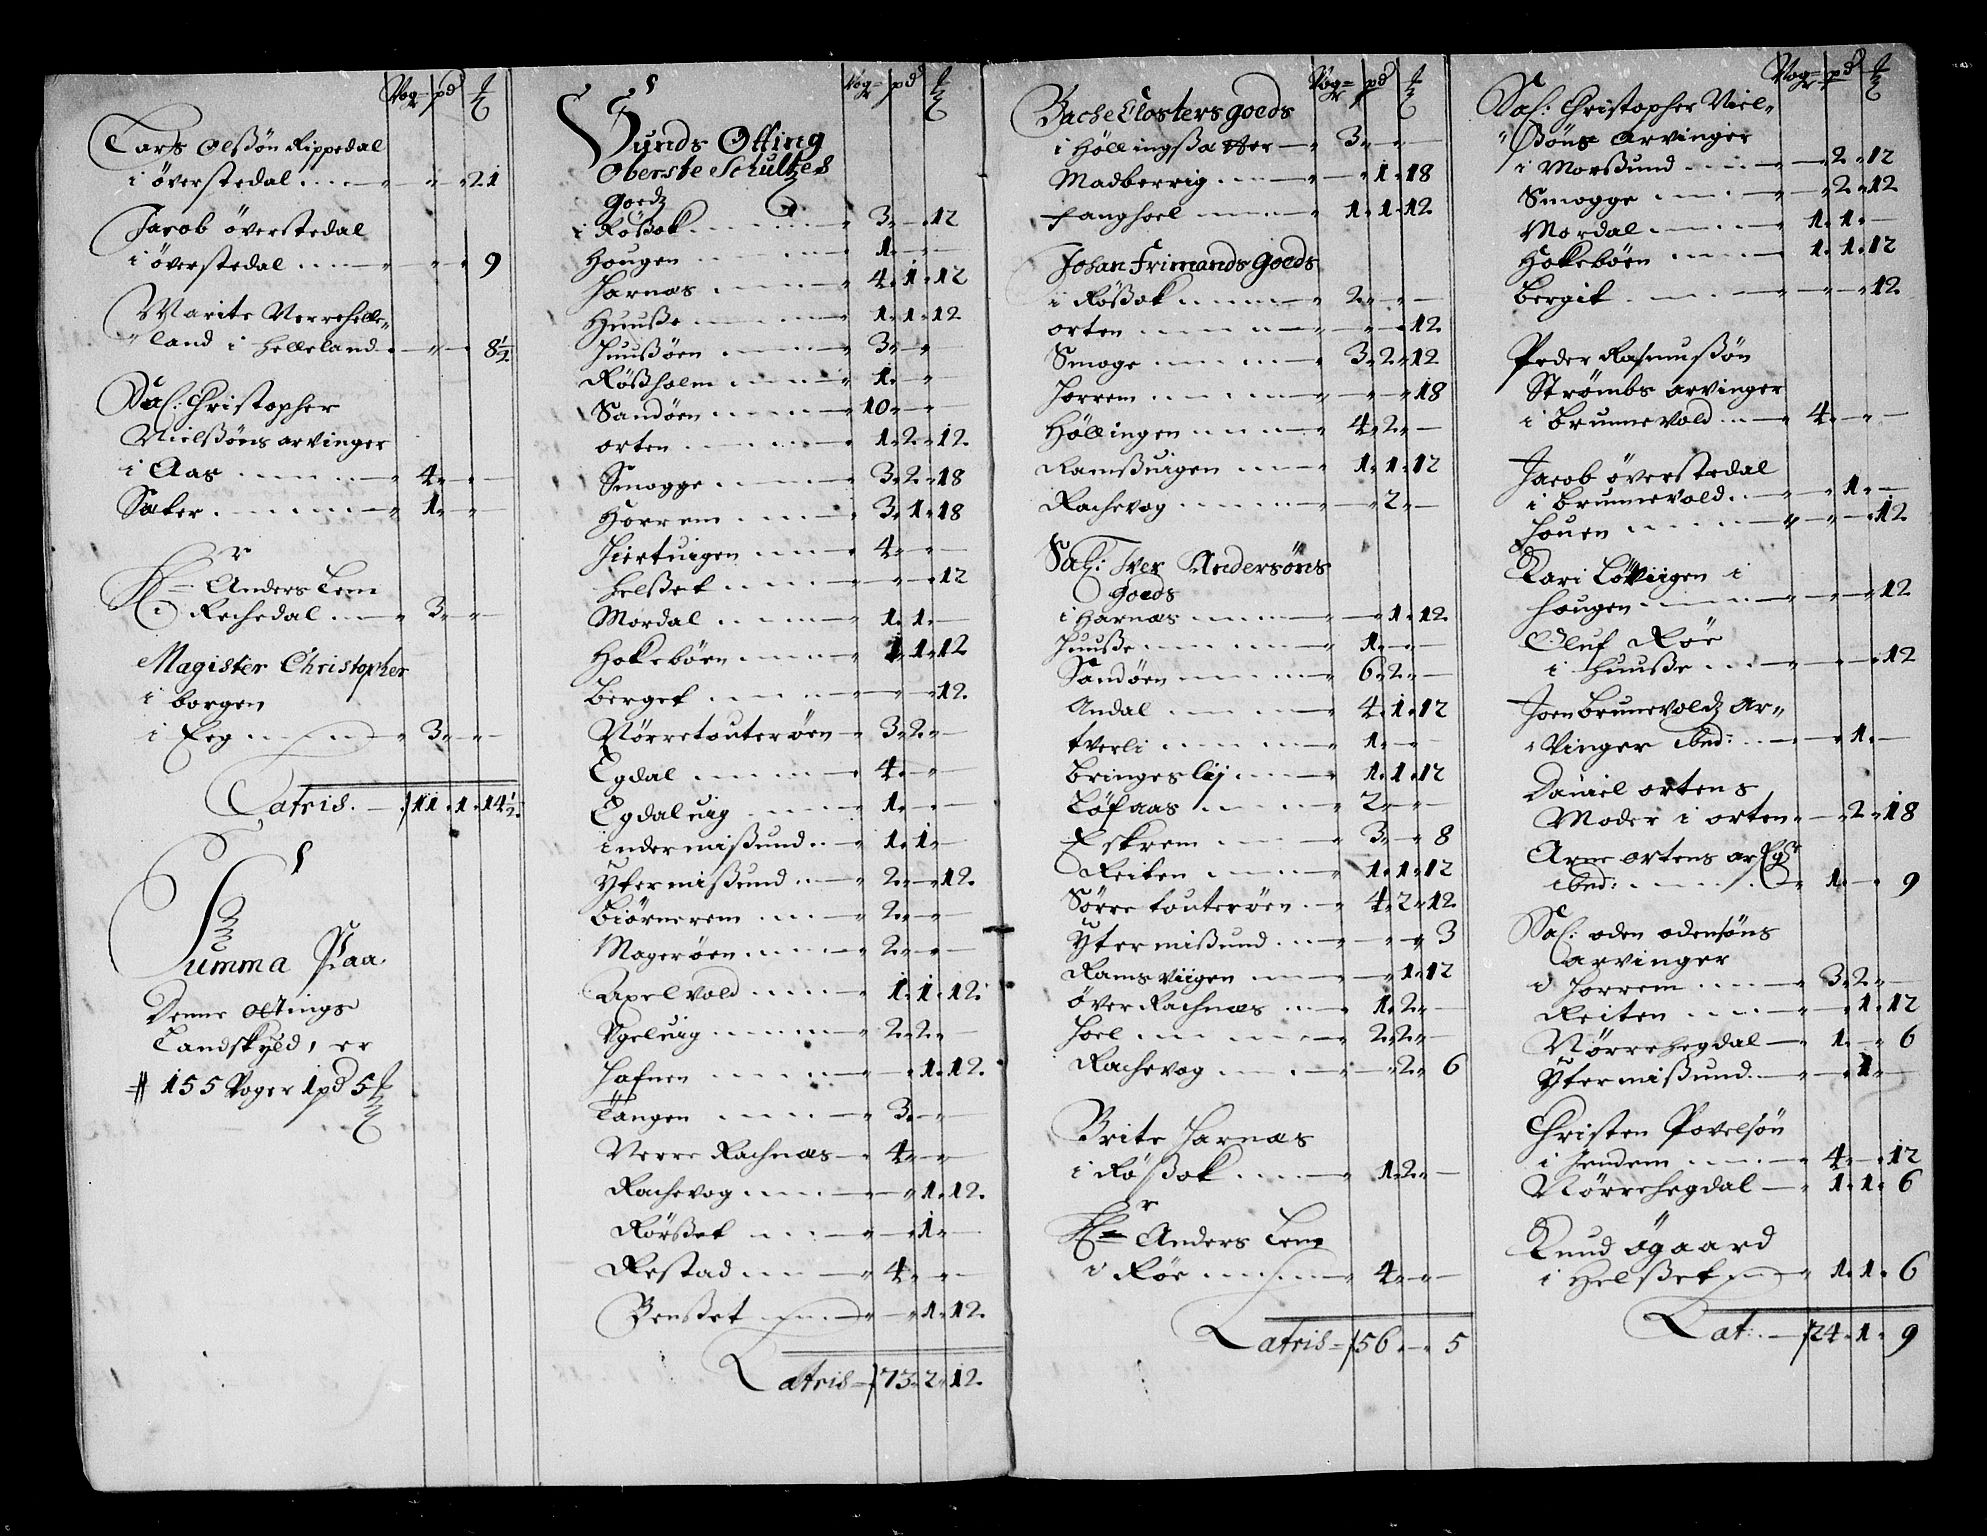 Vog= pd ℔
Lars Olßøn Rippedal
i överstedal - - 21
Jacob överstedal
i överstedal - - 9
Marite Nerrehelle-
land i Helleland - - 8½
Sal: Christopher
Nielßøns arvinger
i Aas 4 - -
Saker 1 - -
Hr Anders Lem
i Rechedal 3 - -
Magister Christopher
i borgen
i Eeg 3 - -
Lateris 11 1 14½
Summa Paa
Denne ottings
Landskyld, er
# 155 Voger 1 pd 5 ℔
Vog= pd ℔
Sunds Otting
Oberste Schultzes
Goedz
i Rößok 3 - 12
Hougen 1 - -
Harnæs 4 1 12
Huuße 1 1 12
Huußøen 3 - -
Rößholm 1 - -
Sandöen 10 - -
orten 1 2 12
Smogge 3 2 18
Horrem 3 1 18
Hiertuigen 4 - -
Helßet - - 12
Mordal 1 1 -
Hokebøen 1 1 12
Berget - - 12
Nørretouterøen 3 2 -
Egdal 4 - -
Egdaluig 1 - -
indermißund 1 1 -
Ytermißund 2 - 12
Biørnerem 2 - -
Magerøen 2 - -
Axelvold 1 1 12
Vgeluig 2 2 -
Hafnen - 1 12
Tangen 3 - -
Nerre Rachnæs 4 - -
Rachevog - 1 12
Rörßet - 1 -
Restad 4 - -
Benßet - 1 12
Lateris 73 2 12
Vog= pd ℔
Bache Closters goeds
i Höllingßætter 3 - -
Madberrig - 1 18
Fanghoel 1 1 12
Johan Frimands Goeds
i Rößok 2 - -
orten - - 12
Smoge 3 2 12
Horrem - - 18
Höllingen 4 2 -
Ramßuigen 1 1 12
Rachevog - 2 -
Sal: Iver Andersöns
Goeds
i Harnæs - 1 12
Huuße 1 - -
Sandöen 6 2 -
Andal 4 1 12
tverli 1 - -
Bringeslij 1 1 12
Löfaas 2 - -
Eskrem 3 - 8
Reiten 1 1 12
Sörre touteröen 4 2 12
Ytermißund - - 3
Ramsviigen - 1 12
över Rachnæs 1 2 -
Hoel 2 2 -
Rachevog - 2 6
Brite Harnæs
i Rößok 1 2 -
Hr Anders Lem
i Röe 4 - -
Lateris 56 - 5
Vog= pd ℔
Sal: Christopher Niel-
ßöns Arvinger
i Morßund - 2 12
Smogge - 2 12
Mordal 1 1 -
Hokebøen 1 1 12
Bergit - - 12
Peder Rasmußøn
Strømbs arvinger
i Brunnevold 4 - -
Jacob överstedal
i Brunnevold - 1 -
Houen - - 12
Kari Løviigen i
Hougen - - 12
Oluf Röe
i Huuße - - 12
Joen Brunevoldz Ar-
vinger ibid: - 1 -
Daniel ortens
Moder i orten - 2 18
Arne ortens
ibid: 1 - 9
Sal: oden odensöns
arvinger
i Horrem 3 2 -
Reiten - 1 12
Nørrehegdal 1 - 6
Ytermißund - 1 -
Christen Povelsön
i Jendem 4 - 12
Nørrehegdal 1 1 6
Knud ögaard
i Helßet 1 1 6
Lat: 24 1 9